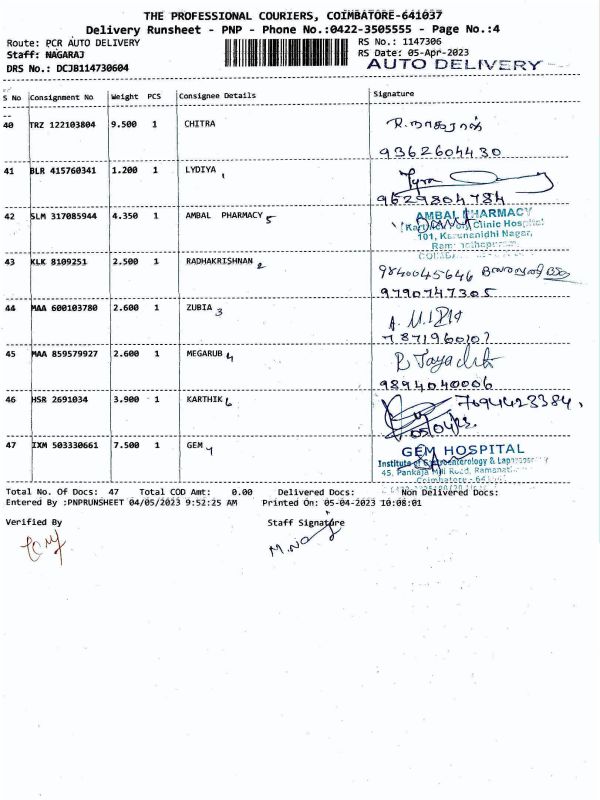 THE PROFESSIONAL COURIERS, COIMBATORE-641037
Delivery Runsheet - PNP - Phone No.:0422-3505555 - Page No.:4
Route: PCR AUTO DELIVERY RS No.: 1147306
Staff: NAGARAJ RS Date: 05-Apr-2023
DRS No.: DCJB114730604 AUTO DELIVERY
S No Consignment No Weight PCS Consignee Details Signature
40 TRZ 122103804 9.500 1 CHITRA R. நாகராஜ்
9362604430
41 BLR 415760341 1.200 1 LYDIYA 1
9629804784
42 SLM 317085944 4.350 1 AMBAL PHARMACY 5 AMBAL PHARMACY
Clinic Hospital
101, Karunanidhi Nagar,
Ramanathapuram,
43 KLK 8109251 2.500 1 RADHAKRISHNAN 2 9840045646
9790747305
44 MAA 600103780 2.600 1 ZUBIA 3
7871960107
45 MAA 859579927 2.600 1 MEGARUB 4
9894040006
46 HSR 2691034 3.900 1 KARTHIK 6 7094423384,
47 IXM 503330661 7.500 1 GEM 7 GEM HOSPITAL
Institute of Gastroenterology &
45, Pankaja Mill Road,
Coimbatore - 641
Total No. Of Docs: 47 Total COD Amt: 0.00 Delivered Docs: Non Delivered Docs:
Entered By :PNPRUNSHEET 04/05/2023 9:52:25 AM Printed On: 05-04-2023 10:08:01
Verified By Staff Signature